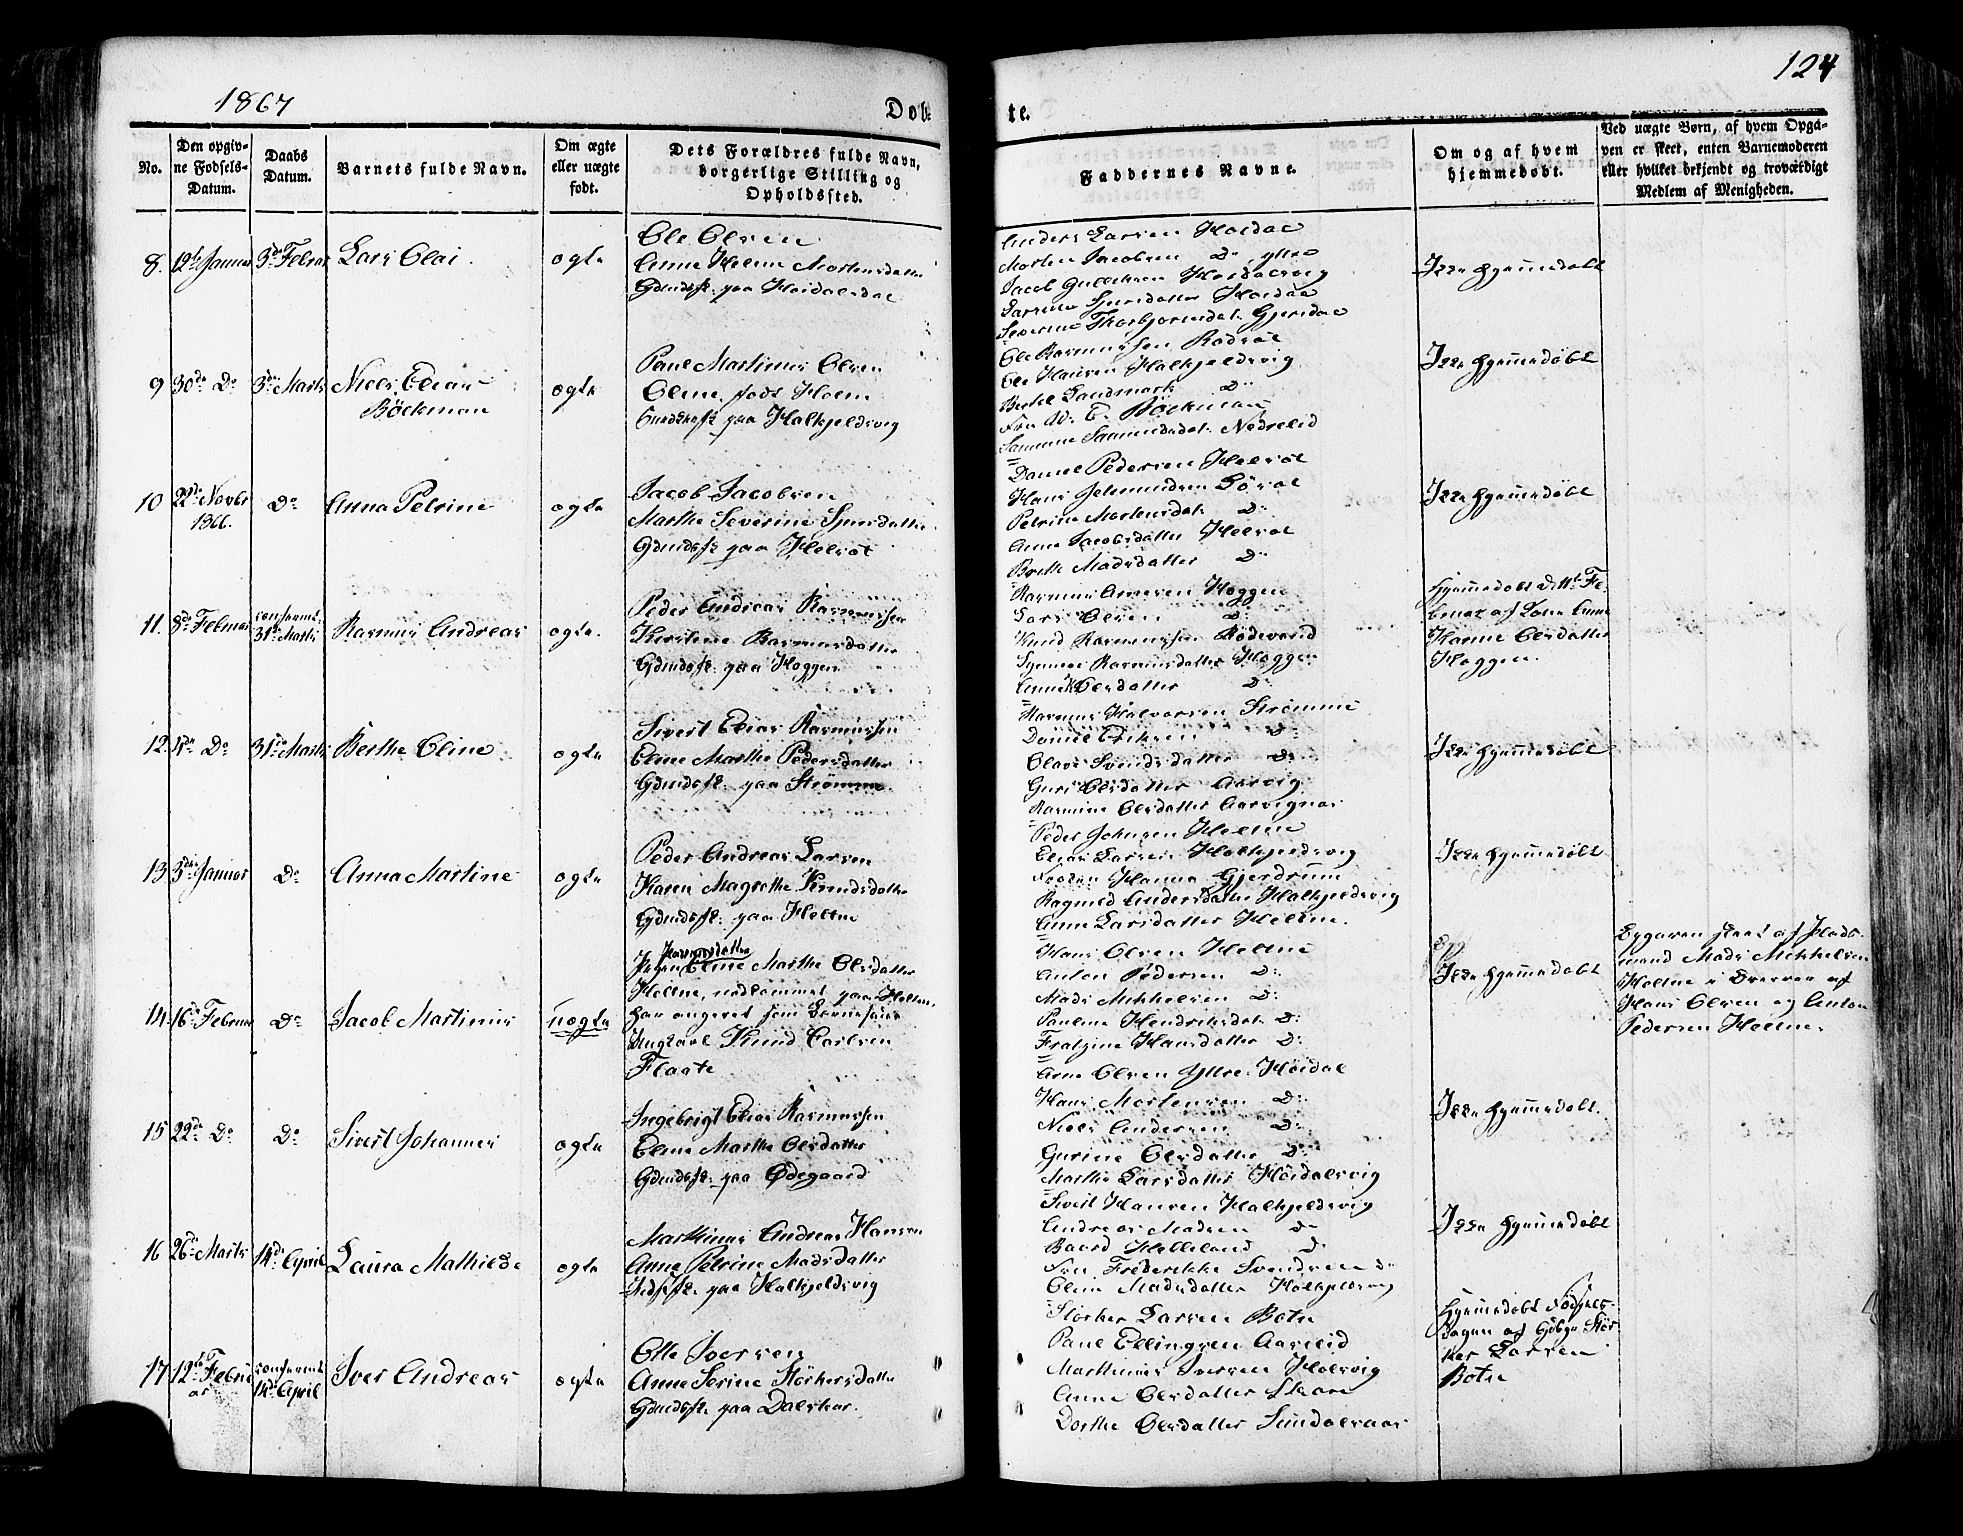 1867
Døb-
te.
124
No.
Den opgiv-
ne Fødsels-
Datum.
Daabs
Datum.
Barnets fulde Navn.
Om ægte
eller uægte
født.
Dets Forældres fulde Navn,
borgerlige Stilling og
Opholdssted.
Faddernes Navne.
Om og af hvem
hjemmedøbt.
Ved uægte Børn, af hvem Opga-
ven er skeet, enten Barnemoderen
eller hvilket bekjendt og troværdigt
Medlem af Menigheden.
8.
12te Januar
3de Februar
Lars Olai
ægte
Ole Olsen
Anne Helene Mortensdatter
Gdmdsf. paa Høidalsdal
Anders Larsen Høidal
Morten Jacobsen Do ytre
Jacob Gullichsen Høidalsvig
Sjursdatter Høidal
Severine Thorbjørnsdat.
Ikke hjemmedøbt
9
30de Do
3die Marts
Niels Elias
Böckman
ægte
Paul Martinus Olsen
Oline, født Holm
paa Halkjeldsvig
Ole Rasmussen Rodsæt
Ole Hansen Halkjeldsvig
Berthe Landmark Do
Fru W. E. Böckman
Nedrelid
Ikke hjemmedøbt
10
22de Novbr
1866.
Do
Anna Petrine
ægte
Jacob Jacobsen
Marthe Severine Sjursdatter
Gdmdsf. paa Helsæt
Daniel Pedersen Helsæt
Hans
Petrine Mortensdat. Do
Anne Jacobsdatter Helsæt
Brithe Madsdatter Do
Ikke hjemmedøbt
11.
8de Februar
confirmt.
31te Marts
Rasmus Andreas
ægte.
Peder Andreas Rasmussen
Kirstine Rasmusdatter
Gdmdsf. paa Høggen
Rasmus Høggen
Lars Olsen Do
Knud Rasmussen Rødevand
Synneve Rasmusdatter Høggen
Olsdatter Do
Hjemmedøbt d. 11te Fe-
bruar af
Hanne Olsdatter
Høggen.
12.
Do
31te Marts
Berthe Oline
ægte
Sivert Elias Rasmussen
Eline Marthe Pedersdatter
Gdmdsf. paa Strømme
Rasmus Halvorsen Strømme
Daniel Eriksen Do
Svendsdatter Do
Guri Olsdatter Aarvig
Rasmine Olsdatter Aarvignæs
Ikke hjemmedøbt
13
3die Januar
Do
Anna Martine
ægte
Peder Andreas Larsen
Karen Magrethe Knudsdatter
Gdmdsf. paa Heltne
Peder Johnsen Heltne
Elias Larsen Halkjeldsvig
Frøken Hanna Gjerdrum
Ragnild Andersdatter Halkjeldsvig
Anne Larsdatter Heltne.
Ikke hjemmedøbt
14
16de Februar
Do
Jacob Martinus
uægte
Pigen Eline Marthe Olsdatter
Heltne, nedkommet paa Heltne,
har angivet som Barnefader
Ungkarl Knud Carlsen
Flaate
Hans Olsen Heltne
Anton Pedersen Do
Mads Mikkelsen Do
Pauline Hendriksdat. Do
Fratzine Hansdatter Do
Ikke hjemmedøbt
Opgaven skeet af Flads-
mand Mads Mikkelsen
Heltne i Overvær af
Hans Olsen og Anton
Pedersen Heltne.
15
22de Do
Do
Sivert Johannes
ægte
Ingebrigt Elias Rasmussen
Eline Marthe Olsdatter
Gdmdsf. paa Ødegaard
Arne Olsen Ytre Høidal
Hans Mortensen Do
Niels Andersen Do
Gurine Olsdatter Do
Marthe Larsdatter Høidalsvig
Ikke hjemmedøbt.
16
26de Marts
14de April
Laura Mathilde
ægte
Martinus Andreas Hansen
Anne Petrine Madsdatter
paa Halkjeldsvig
Sivert Hansen Halkjeldsvig
Andreas Madsen Do
Baard Helleland Do
Fru Frederikke Svendsen Do
Oline Madsdatter Halkjeldsvig
Ikke hjemmedøbt
17
12te Febru-
ar
confirmt
14de April
Iver Andreas
ægte
Elle Iversen
Anne Serine Størkersdatter
Gdmdsf. paa Dalskar.
Størker Larsen Botn
Paul Ellingsen Aarseid
Martinus Iversen Holsvig
Anne Olsdatter Skare
Dorthe Olsdatter
Hjemmedøbt Fødsels-
dagen af Gdbr. Stør-
ker Larsen
Botn